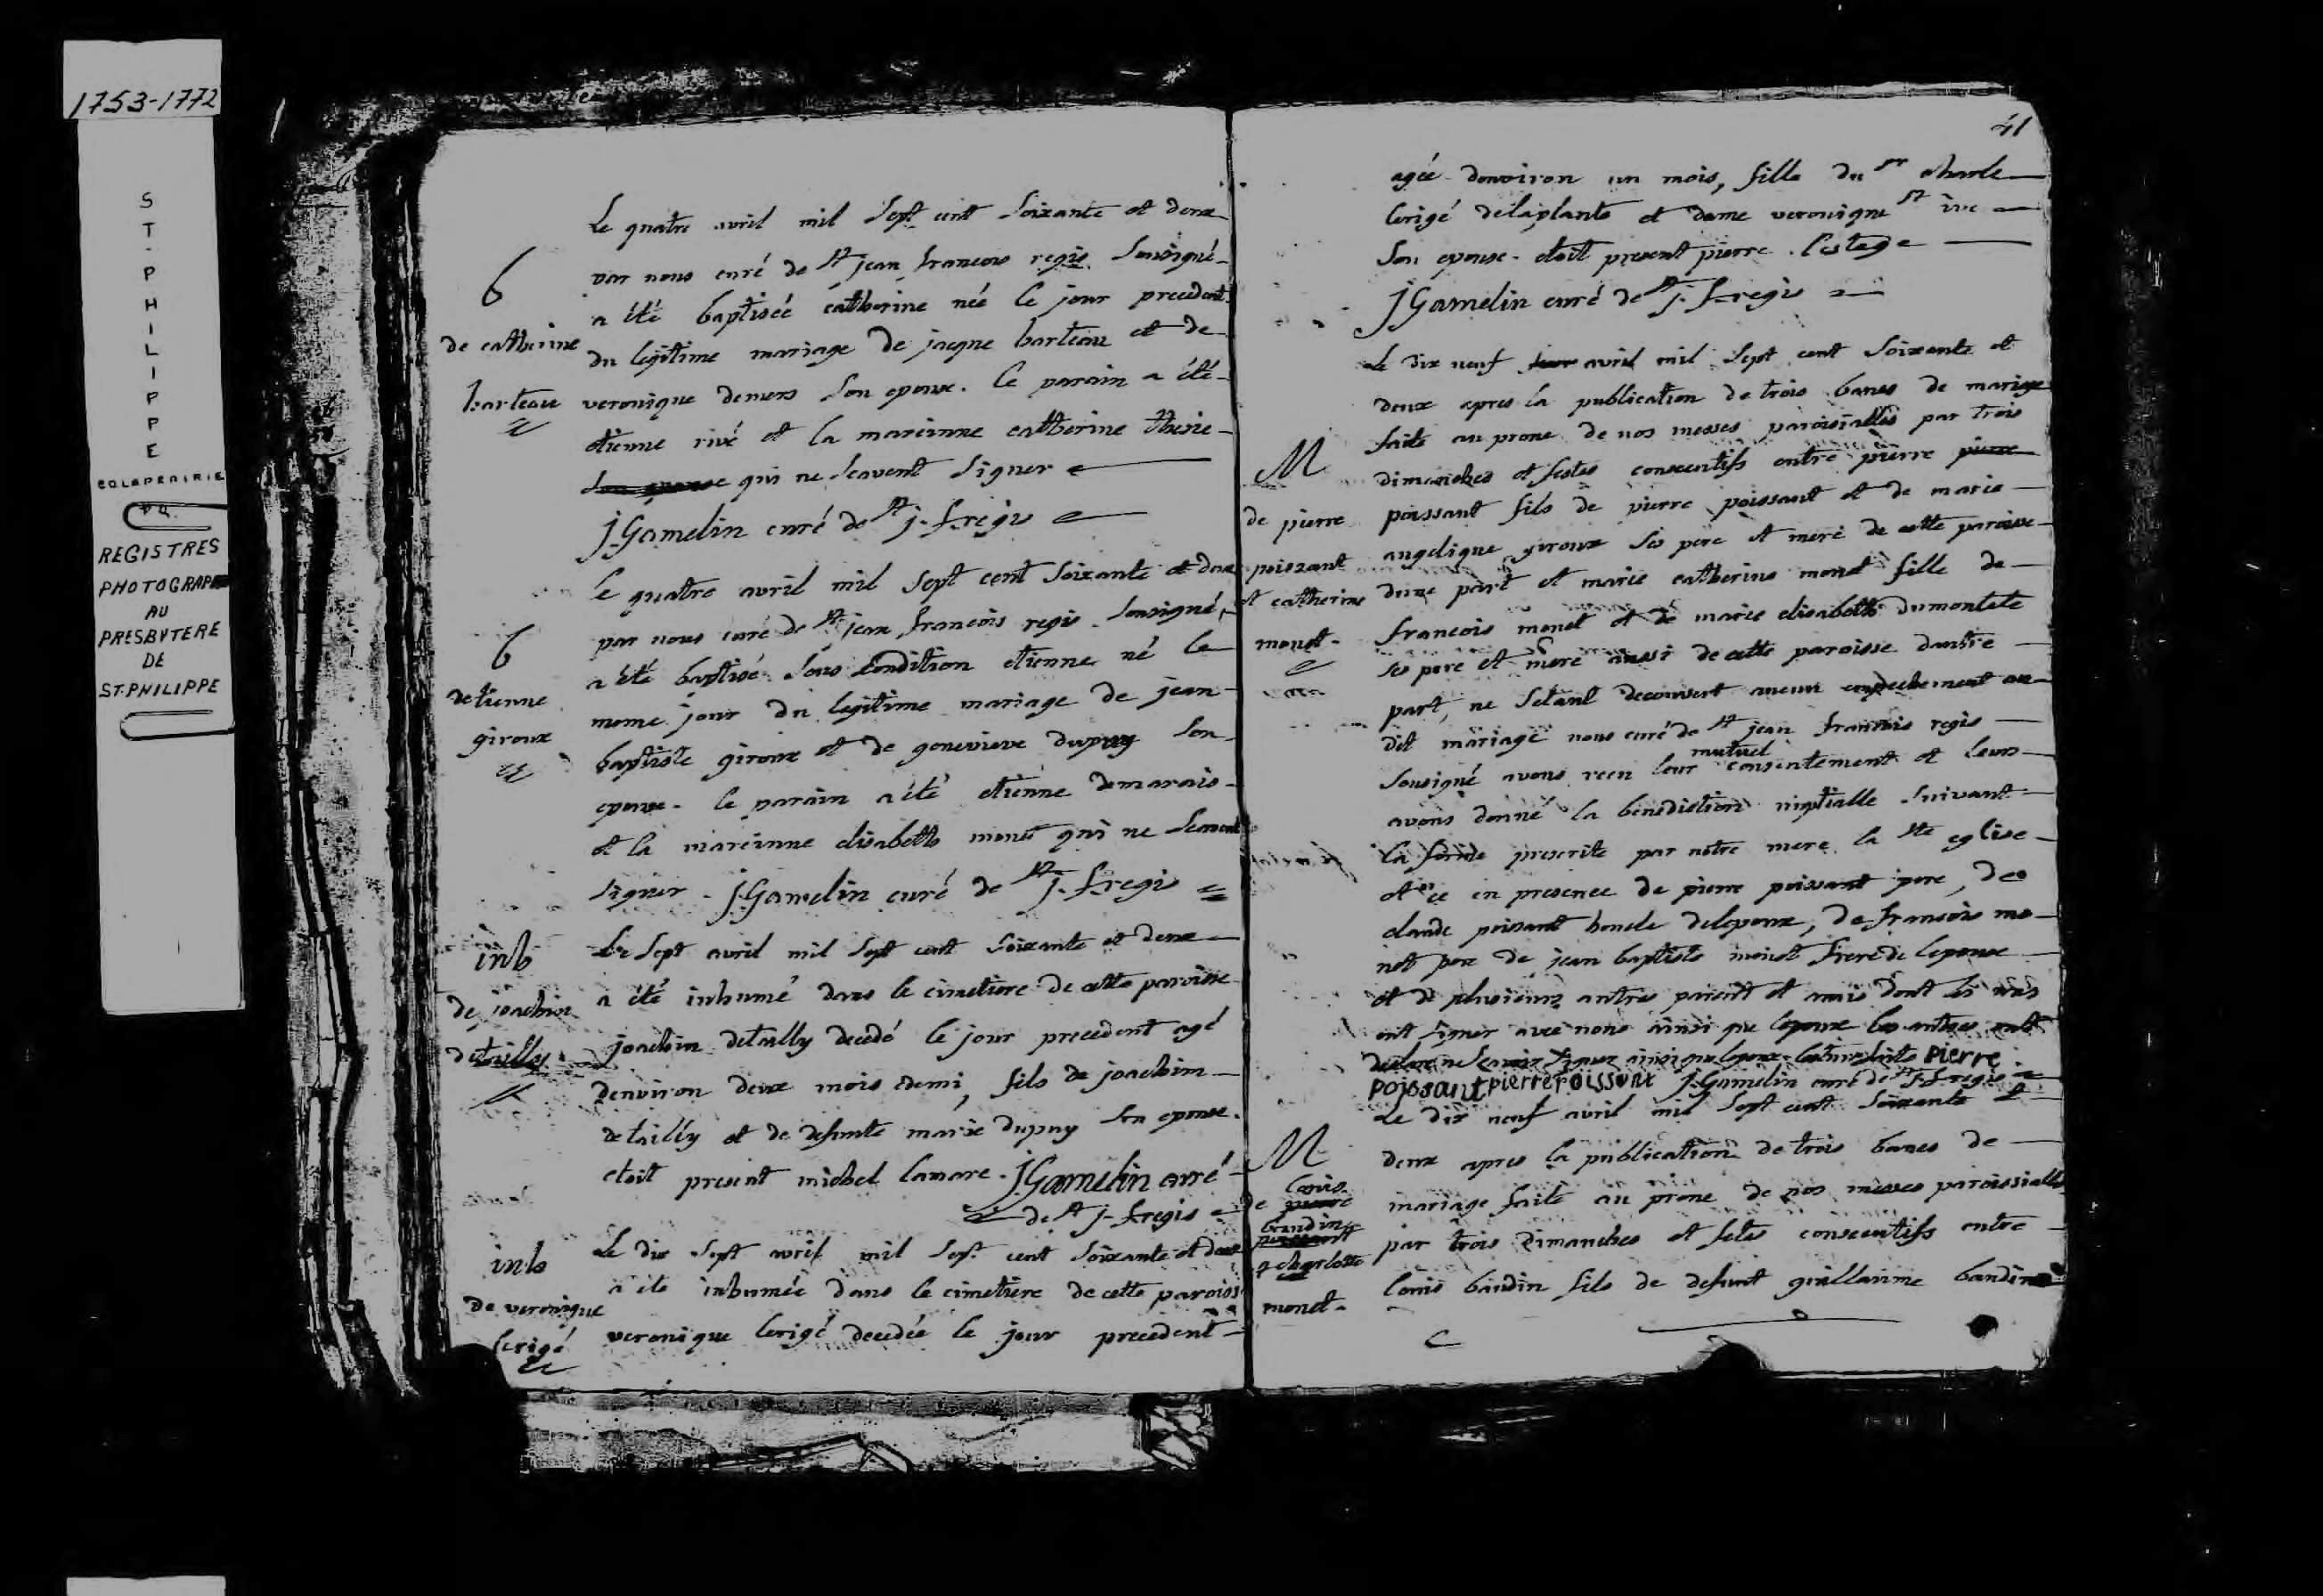 1753-1772
ST-PHILIPPE
COLAPRAIRIE
P.Q.
REGISTRES
PHOTOGRAPH
AU
PRESBYTERE
DE
ST-PHILIPPE
Le quatre avril mil sept cent soixante et deux
par nous curé de st jean francois regis sousigné
a été baptisée catherine née le jour precedent
du legitime mariage de jacque barteau et de
veronique demers son epouse. le parain a été
etienne rivé et la mareinne catherine
qui ne scavent signer
J. Gamelin curé de st j. f. regis
b
de catherine
barteau
le quatre avril mil sept cent soixante et deux
par nous curé de st jean francois regis sousigné
a été baptisé sous condition etienne né le
meme jour du legitime mariage de jean
baptiste giroux et de genevieve dupuy son
epouse. le parain a été etienne demarais
et la mareinne elisabeth monet qui ne scavent
signer. J. Gamelin curé de st j. f. regis
b
detienne
giroux
Le sept avril mil sept cent soixante et deux
a été inhumé dans le cimetiere de cette paroisse
joachin detailly decedé le jour precedent agé
denviron deux mois edemi, fils de joachim
detailly et de defunte marie dupuy son epouse.
etoit present michel lamare. J. Gamelin curé
de st j. f. regis
inh
de joachin
detailly
Le dix sept avril mil sept cent soixante et deux
a été inhumée dans le cimetiere de cette paroiss
veronique lerigé decedée le jour precedent
inh
de veronique
lerigé
41
agée denviron un mois, fille du sr charle
lerigé delaplante et dame veronique st ive
son epouse. etoit present pierre lestage
J Gamelin curé de st j. f. regis
Le dix neuf avril mil sept cent soixante et
deux apres la publication de trois bancs de mariage
faite au prone de nos messes paroisialles par trois
dimanches et festes consecutifs entre pierre pierre
poissant fils de pierre poissant et de marie
angelique giroux ses pere et mere de cette paroisse
dune part et marie catherine monet fille de
francois monet et de marie elisabeth dumontete
ses pere et mere aussi de cette paroisse dautre
part, ne setant decouvert aucun empechement au
dit mariage nous curé de st jean francois regis
sousigné avons recu leur mutuel consentement et leurs
avons donné la benediction nuptialle suivant
la forme prescrite par notre mere la ste eglise
et ce en presence de pierre poissant pere, de
claude poissant honcle delepoux, de francois mo-
net pere de jean baptiste monet frere de lepouse
et de plusieurs autres parent et amis dont les uns
ont signer avec nous ainsi que lepoux les autres ont
declare ne scavoir signer ainsi que lepouse pierre
poissant pierre poissant J. Gamelin curé de st j. f. regis
M
de pierre
poissant
et catherine
monet
Le dix neuf avril mil sept cent soixante et
deux apres la publication de trois bancs de
mariage faite au prone de nos messes paroissialles
par trois dimanches et fetes consecutifs entre
louis baudin fils de defunt guillaume baudin
M
Louis
de pierre
baudin
poissant
et charlotte
monet